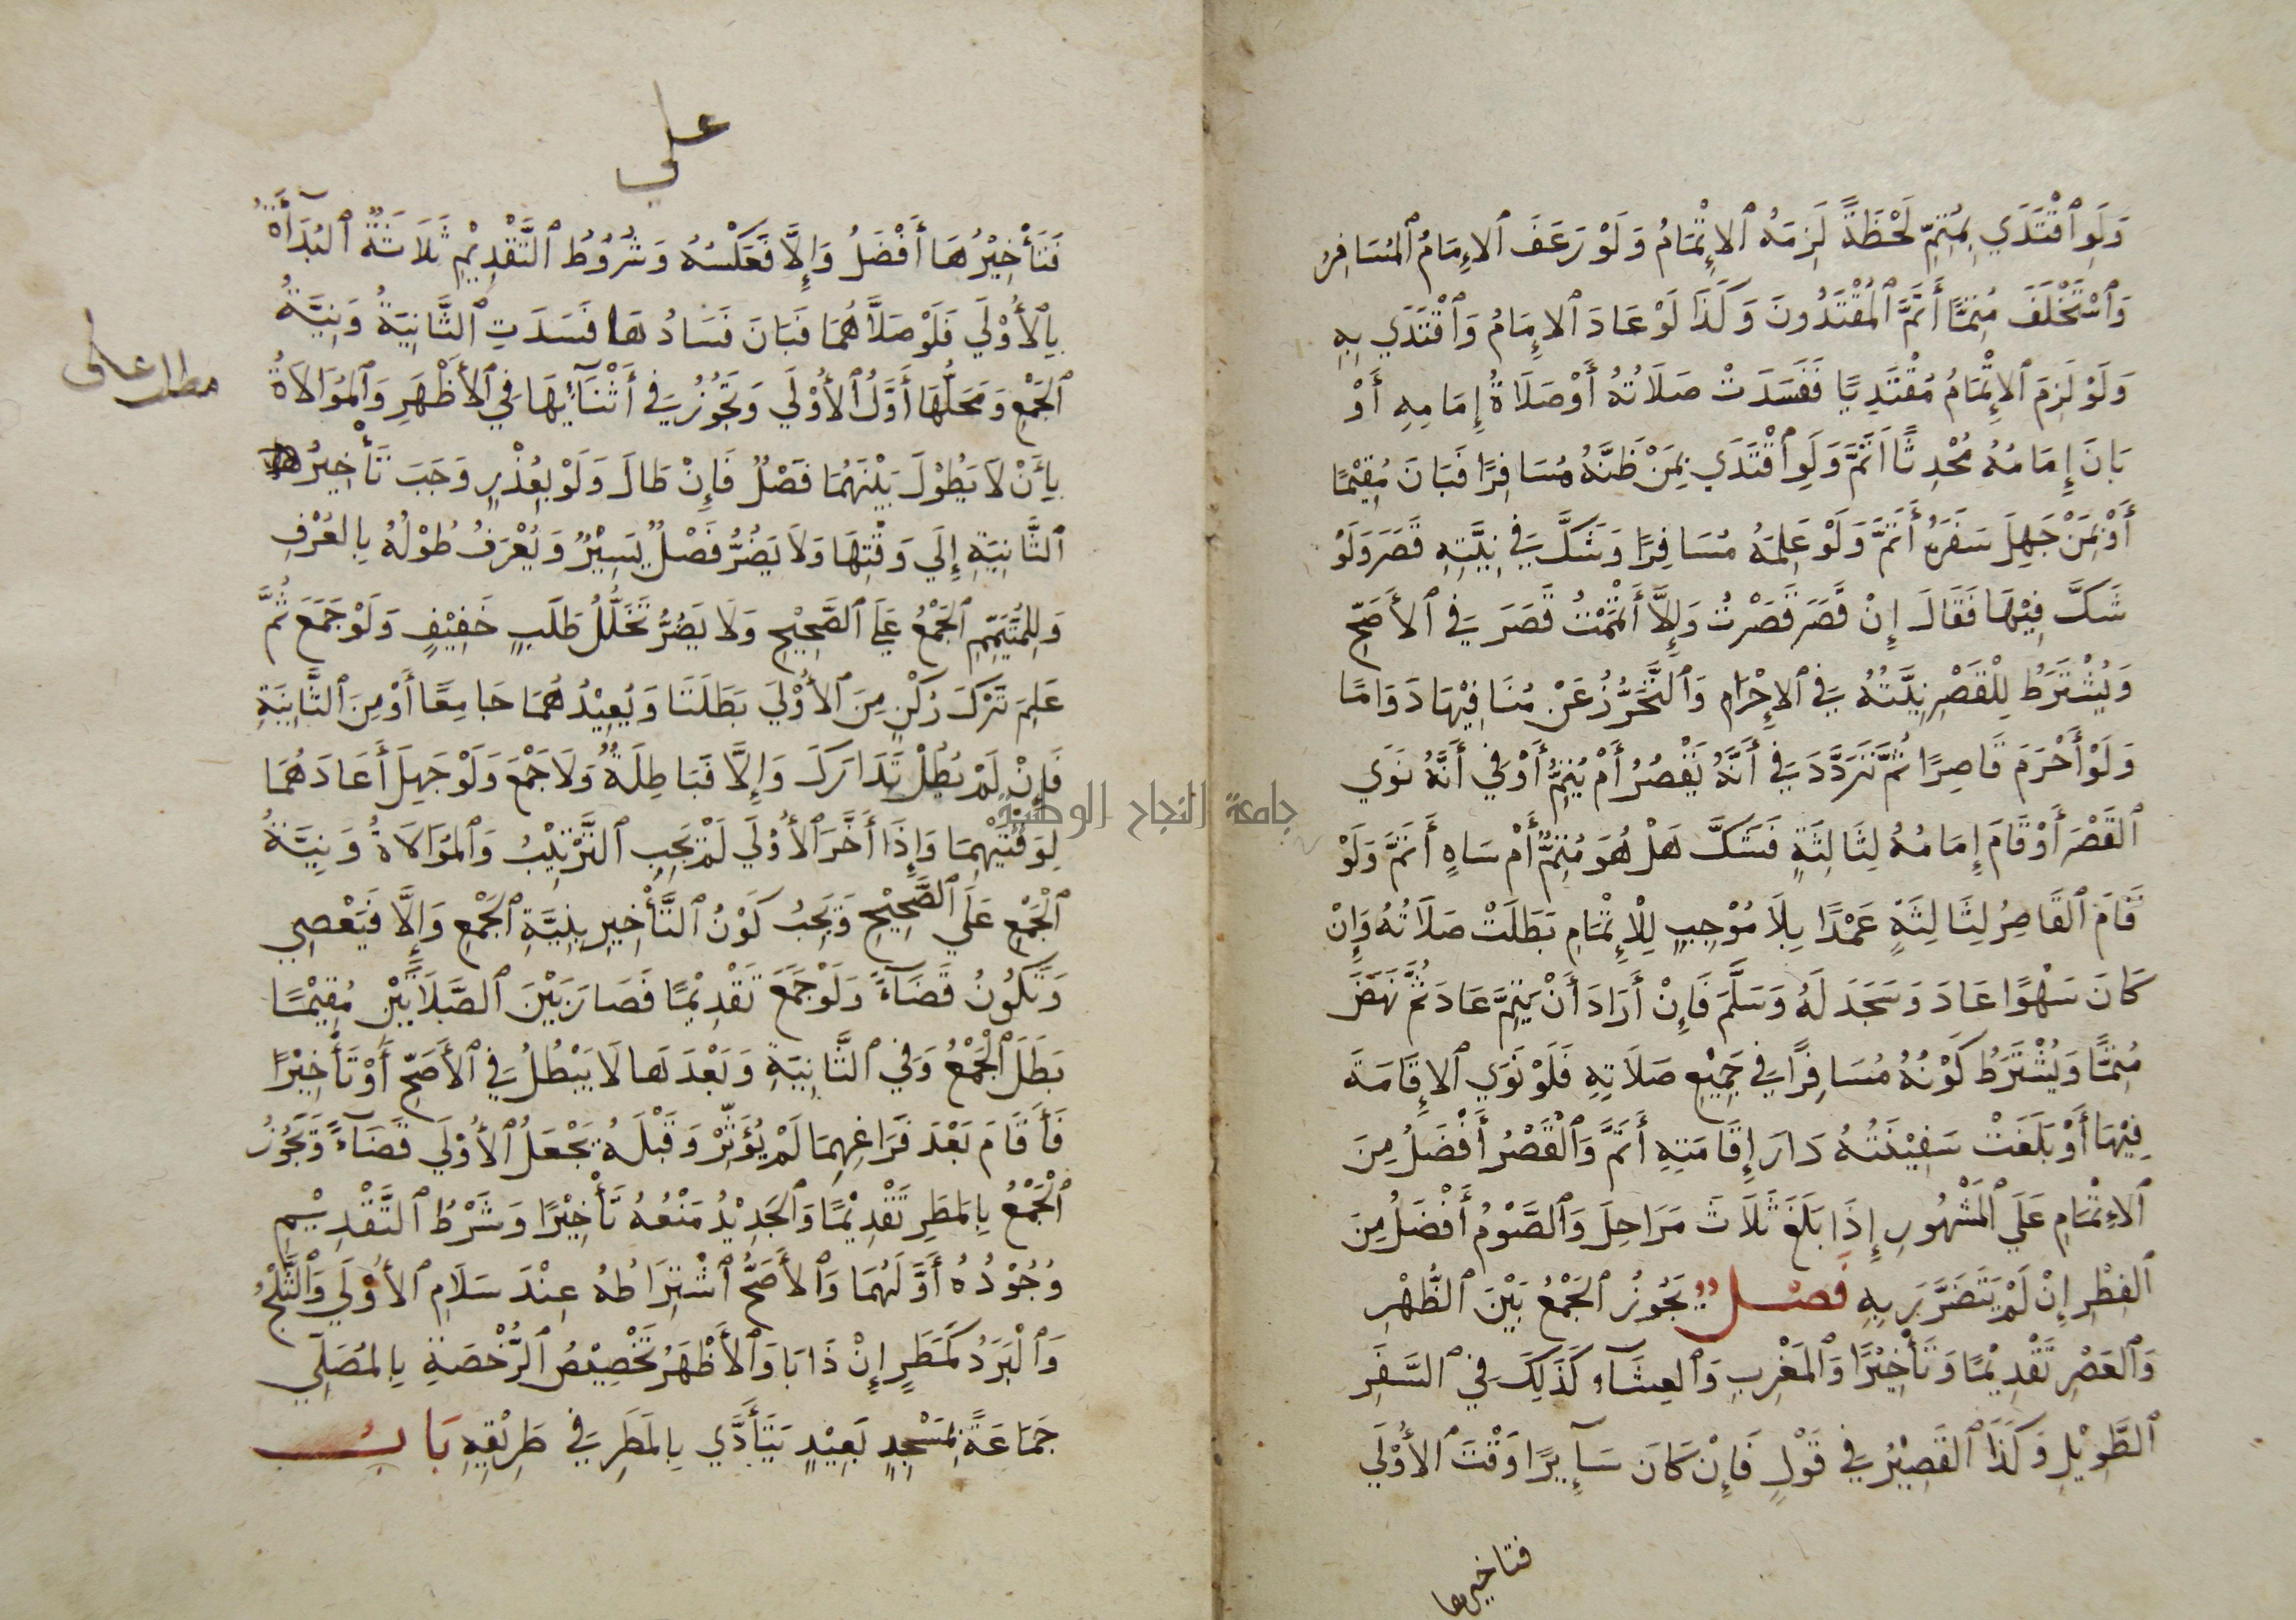 وَلَوِ ٱقْتَدَي بِمُتِمٍّ لَحْظَةً لَزِمَهُ ٱلإِتْمَامُ وَلَوْ رَعَفَ ٱلإِمَامُ ٱلمُسَافِرُ
وَٱسْتَخْلَفَ مُتِمًّا أَتَمَّ ٱلمُقْتَدُونَ وَكَذَا لَوْ عَادَ ٱلإِمَامُ وَٱقْتَدَي بِهِ
وَلَوْ لَزِمَ ٱلإِتْمَامُ مُقْتَدِيًا فَفَسَدَتْ صَلَاتُهُ أَوْ صَلَاةُ إِمَامِهِ أَوْ
بَانَ إِمَامُهُ مُحْدِثًا أَتَمَّ وَلَوِ ٱقْتَدَي بِمَنْ ظَنَّهُ مُسَافِرًا فَبَانَ مُقِيْمًا
أَوْ بِمَنْ جَهِلَ سَفَرَهُ أَتَمَّ وَلَوْ عَلِمَهُ مُسَافِرًا وَشَكَّ فِي نِيَّتِهِ قَصَرَ وَلَوْ
شَكَّ فِيْهَا فَقَالَ إِنْ قَصَرَ قَصَرْتُ وَإِلَّا أَتْمَمْتُ قَصَرَ فِي ٱلأَصَحِّ
وَيُشْتَرَطُ لِلْقَصْرِ نِيَّتُهُ فِي ٱلإِحْرَامِ وَٱلتَّحَرُّزُ عَنْ مُنَافِيْهَا دَوَامًا
وَلَوْ أَحْرَمَ قَاصِرًا ثُمَّ تَرَدَّدَ فِي أَنَّهُ يَقْصُرُ أَمْ يُتِمُّ أَوْ فِي أَنَّهُ نَوَي
ٱلقَصْرَ أَوْ قَامَ إِمَامُهُ لِثَالِثَةٍ فَشَكَّ هَلْ هُوَ مُتِمٌّ أَمْ سَاهٍ أَتَمَّ وَلَوْ
قَامَ ٱلقَاصِرُ لِثَالِثَةٍ عَمْدًا بِلَا مُوْجِبٍ لِلْإِتْمَامِ بَطَلَتْ صَلَاتُهُ وَإِنْ
كَانَ سَهْوًا عَادَ وَسَجَدَ لَهُ وَسَلَّمَ فَإِنْ أَرَادَ أَنْ يُتِمَّ عَادَ ثُمَّ نَهَضَ
مُتِمًّا وَيُشْتَرَطُ كَوْنُهُ مُسَافِرًا فِي جَمِيْعِ صَلَاتِهِ فَلَوْ نَوَي ٱلإِقَامَةَ
فِيْهَا أَوْ بَلَغَتْ سَفِيْنَتُهُ دَارَ إِقَامَتِهِ أَتَمَّ وَٱلْقَصْرُ أَفْضَلُ مِنَ
ٱلإِتْمَامِ عَلَي ٱلمَشْهُورِ إِذَا بَلَغَ ثَلَاثَ مَرَاحِلَ وَٱلصَّوْمُ أَفْضَلُ مِنَ
ٱلفِطْرِ إِنْ لَمْ يَتَضَرَّرْ بِهِ فَصْلٌ يَجُوزُ ٱلجَمْعُ بَيْنَ ٱلظُّهْرِ
وَٱلعَصْرِ تَقْدِيْمًا وَتَأْخِيْرًا وَٱلمَغْرِبِ وَٱلعِشَآءِ كَذَلِكَ فِي ٱلسَّفَرِ
ٱلطَّوِيْلِ وَكَذَا ٱلقَصِيْرُ فِي قَوْلٍ فَإِنْ كَانَ سَآئِرًا وَقْتَ ٱلأُوْلَي
فتاخيرها
علي
فَتَأْخِيْرُهَا أَفْضَلُ وَإِلَّا فَعَكْسُهُ وَشُرُوْطُ ٱلتَّقْدِيْمِ ثَلَاثَةٌ ٱلبُدَآءَةُ
بِٱلأُوْلَي فَلَوْ صَلَّاهُمَا فَبَانَ فَسَادُهَا فَسَدَتِ ٱلثَّانِيَةُ وَنِيَّةُ
ٱلجَمْعِ وَمَحَلُّهَا أَوَّلُ ٱلأُوْلَي وَتَجُوْزُ فِي أَثْنَآئِهَا فِي ٱلأَظْهَرِ وَٱلمُوَالَاةُ
مطلب علي
بِأَنْ لَا يَطُوْلَ بَيْنَهُمَا فَصْلٌ فَإِنْ طَالَ وَلَوْ بِعُذْرٍ وَجَبَ تَأْخِيرُ
ٱلثَّانِيَةِ إِلَي وَقْتِهَا وَلَا يَضُرُّ فَصْلٌ يَسِيْرٌ وَيُعْرَفُ طُوْلُهُ بِالعُرْفِ
وَلِلْمُتَيَمِّمِ ٱلجَمْعُ عَلَي ٱلصَّحِيْحِ وَلَا يَضُرُّ تَخَلُّلُ طَلَبٍ خَفِيْفٍ وَلَوْ جَمَعَ ثُمَّ
عَلِمَ تَرْكَ رُكْنٍ مِنَ ٱلأُوْلَي بَطَلَتَا وَيُعِيْدُهُمَا جَامِعًا أَوْ مِنَ ٱلثَّانِيَةِ
فَإِنْ لَمْ يَطُلْ تَدَارَكَ وَإِلَّا فَبَاطِلَةٌ وَلَا جَمْعَ وَلَوْ جَهِلَ أَعَادَهُمَا
لِوَقْتَيْهِمَا وَإِذَا أَخَّرَ ٱلأُوْلَي لَمْ يَجِبِ ٱلتَّرْتِيْبُ وَٱلمُوَالَاةُ وَنِيَّةُ
ٱلْجَمْعِ عَلَي ٱلصَّحِيْحِ وَيَجِبُ كَوْنُ ٱلتَّأْخِيرِ بِنِيَّةِ ٱلجَمْعِ وَإِلَّا فَيَعْصِي
وَتَكُونُ قَضَآءً وَلَوْ جَمَعَ تَقْدِيْمًا فَصَارَ بَيْنَ ٱلصَّلَاتَيْنِ مُقِيْمًا
بَطَلَ ٱلْجَمْعُ وَفِي ٱلثَّانِيَةِ وَبَعْدَهَا لَا يَبْطُلُ فِي ٱلأَصَحِّ أَوْ تَأْخِيْرًا
فَأَقَامَ بَعْدَ فَرَاغِهِمَا لَمْ يُؤَثِّرْ وَقَبْلَهُ يَجْعَلُ ٱلأُوْلَي قَضَآءً وَيَجُوْزُ
ٱلْجَمْعُ بِالمَطَرِ تَقْدِيْمًا وَٱلجَدِيْدُ مَنْعُهُ تَأْخِيْرًا وَشَرْطُ ٱلتَّقْدِيْمِ
وُجُوْدُهُ أَوَّلَهُمَا وَٱلأَصَحُّ ٱشْتِرَاطُهُ عِنْدَ سَلَامِ ٱلأُوْلَي وَٱلْثَّلْجُ
وَٱلْبَرَدُ كَمَطَرٍ إِنْ ذَابَا وَٱلأَظْهَرُ تَخْصِيْصُ ٱلرُّخْصَةِ بِالمُصَلِّي
جَمَاعَةً بِمَسْجِدٍ بَعِيْدٍ يَتَأَذَّي بِالمَطَرِ فِي طَرِيْقِهِ بَابُ
جامعة النجاح الوطنية